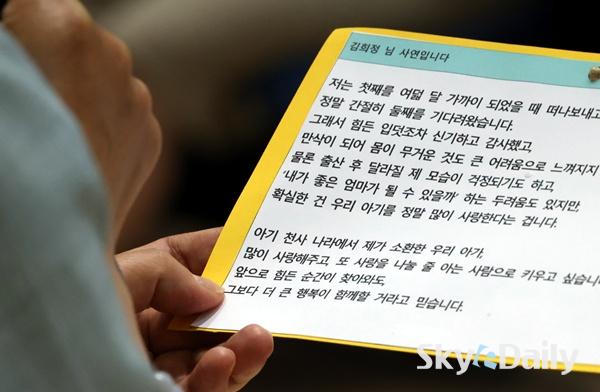 김희정 님 사연입니다
저는 첫째를 여덟 달 가까이 되었을 때 떠나보내고
정말 간절히 둘째를 기다려왔습니다.
그래서 힘든 입덧조차 신기하고 감사했고,
만삭이 되어 몸이 무거운 것도 큰 어려움으로 느껴지지
물론 출산 후 달라질 제 모습이 걱정되기도 하고,
'내가 좋은 엄마가 될 수 있을까' 하는 두려움도 있지만,
확실한 건 우리 아기를 정말 많이 사랑한다는 겁니다.
아기 천사 나라에서 제가 소환한 우리 아가,
많이 사랑해주고, 또 사랑을 나눌 줄 아는 사람으로 키우고 싶습니
앞으로 힘든 순간이 찾아와도,
그보다 더 큰 행복이 함께할 거라고 믿습니다.
Sky Daily